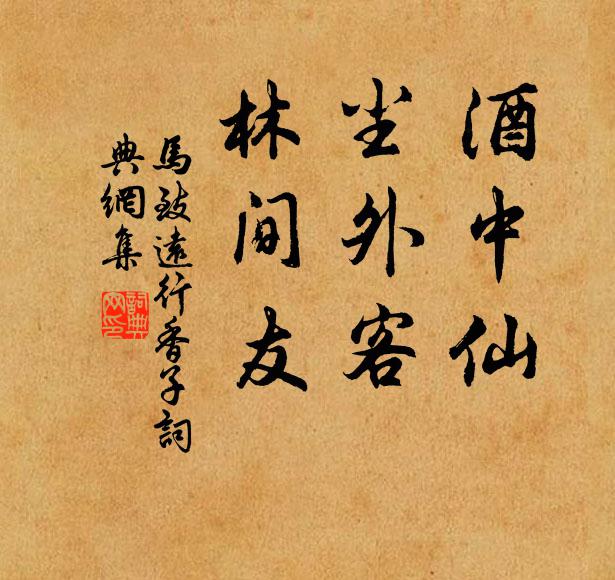 酒中仙
尘外客
林间友
馬致遠行香子詞
典網集
詞典
网印